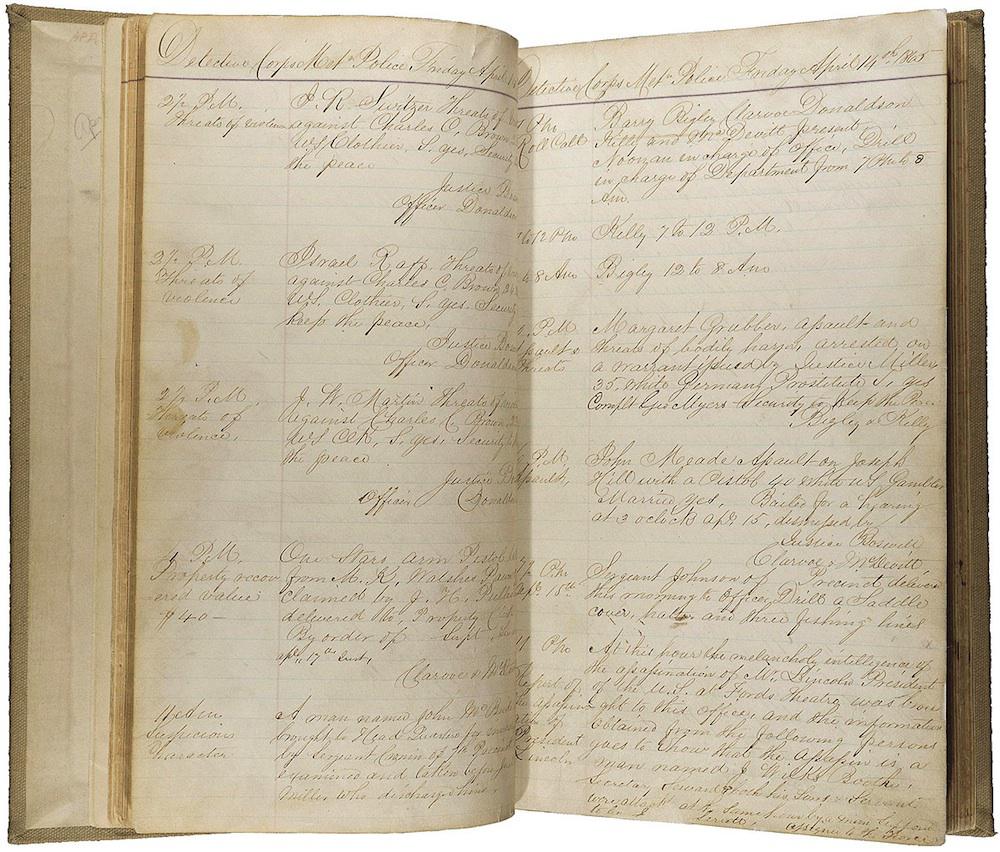 Detective Corps Metn Police Friday April
2½ P.M.
Threats of violence
J. R. Switzer Threats of
against Charles C. Brown
U.S. Clothier, S. yes, Security
the peace
Justice
Officer Donaldson
2½ P.M.
Threats of
violence
Israel Raff. Threats of
against Charles C. Brown, 34
U.S. Clothier, S. yes. Security
keep the peace,
Justice
Officer Donaldson
2½ P.M.
Threats of
violence,
J. W. Martin Threats of
against Charles C Brown,
US Clk, S. yes, Security to
the peace
Justice
Officer Donaldson
4 P.M.
Property recov
ered value
$40—
One Starrs arm Pistol
from M. K. Walshes Pawn
claimed by J. H.
delivered to, Property Clk
By order of Supt,
apl, 17th Inst,
Clarvoe &
11 A.m.
Suspicious
Character
A man named John
brought to Head Quarters for
by Sergeant Cronin of 7th Precinct
examined and taken before Just
Miller who discharged him.
Detective Corps Metn Police Friday April 14th 1865
7 Pm
Roll Call
Barry Bigley Clarvoe Donaldson
Kelly and McDevitt present
Noonan in charge of office, Drill
in charge of Department from 7 Pm to 8
Am.
to 12 Pm
Kelly 7 to 12 P.M.
to 8 Am
Bigley 12 to 8 Am
P.M.
Assault &
Threats
Margaret Grubber, assault and
threats of bodily harm, arrested on
a warrant issued by Justice Miller
35, white Germany, Prostitute S. yes
Complt Geo Myers Security to keep the
Bigley & Kelly
P.M.
Assault,
John Meade Assault on Joseph
Hill with a Pistol 40 white US Gambler
Married yes, Bailed for a hearing
at 3 oclock apl 15, dismissed by
Justice Boswell
Clarvoe & McDevitt
Pm
15th
Sergeant Johnson of Precinct delivered
this morning to Officer Drill a Saddle
cover, halter and three fishing lines
11 Pm
Report of
the assassin
ation of
President
Lincoln
At this hour the melancholy intelligence of
the assassination of Mr. Lincoln President
of the U.S. at Fords Theatre was brou
ght to this office, and the information
obtained from the following persons
goes to show that the assassin is a
man named J. Wilks Booth.
Secretary Seward & both his Sons & Servant
were attack at the same hour by a man supposed
to be